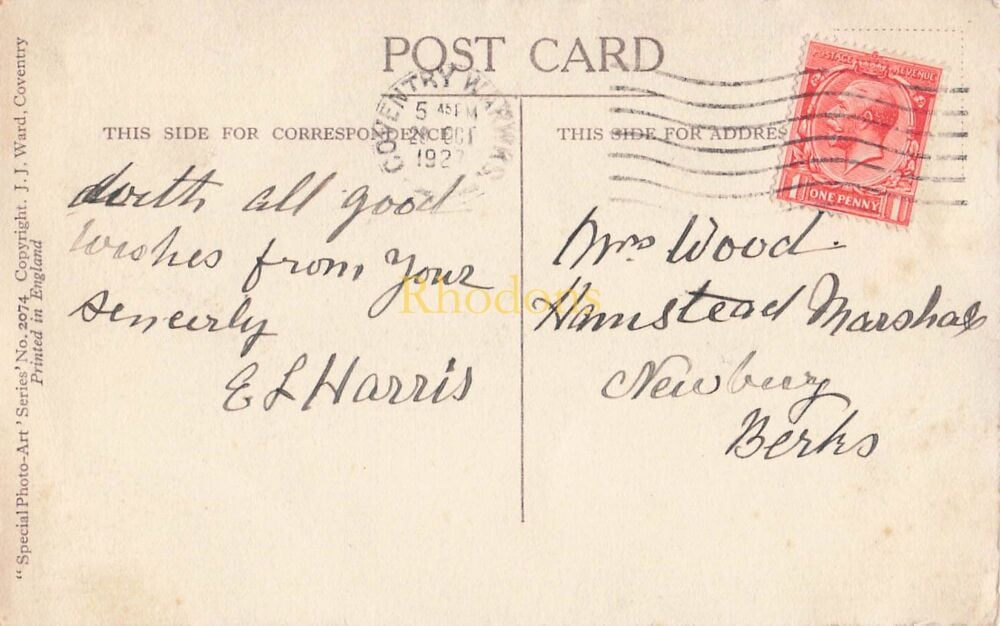 POST CARD
THIS SIDE FOR CORRESPONDENCE
THIS SIDE FOR ADDRESS
COVENTRY WARWKS
5 45 PM
OCT
192
POSTAGE REVENUE
1 ONE PENNY 1
with all good
wishes from your
sencerly
E L Harris
Mrs Wood.
Hamstead Marshal
Newbury
Berks
Rhodons
"Special Photo-Art' Series' No. 2074 Copyright. J.J. Ward, Coventry
Printed in England